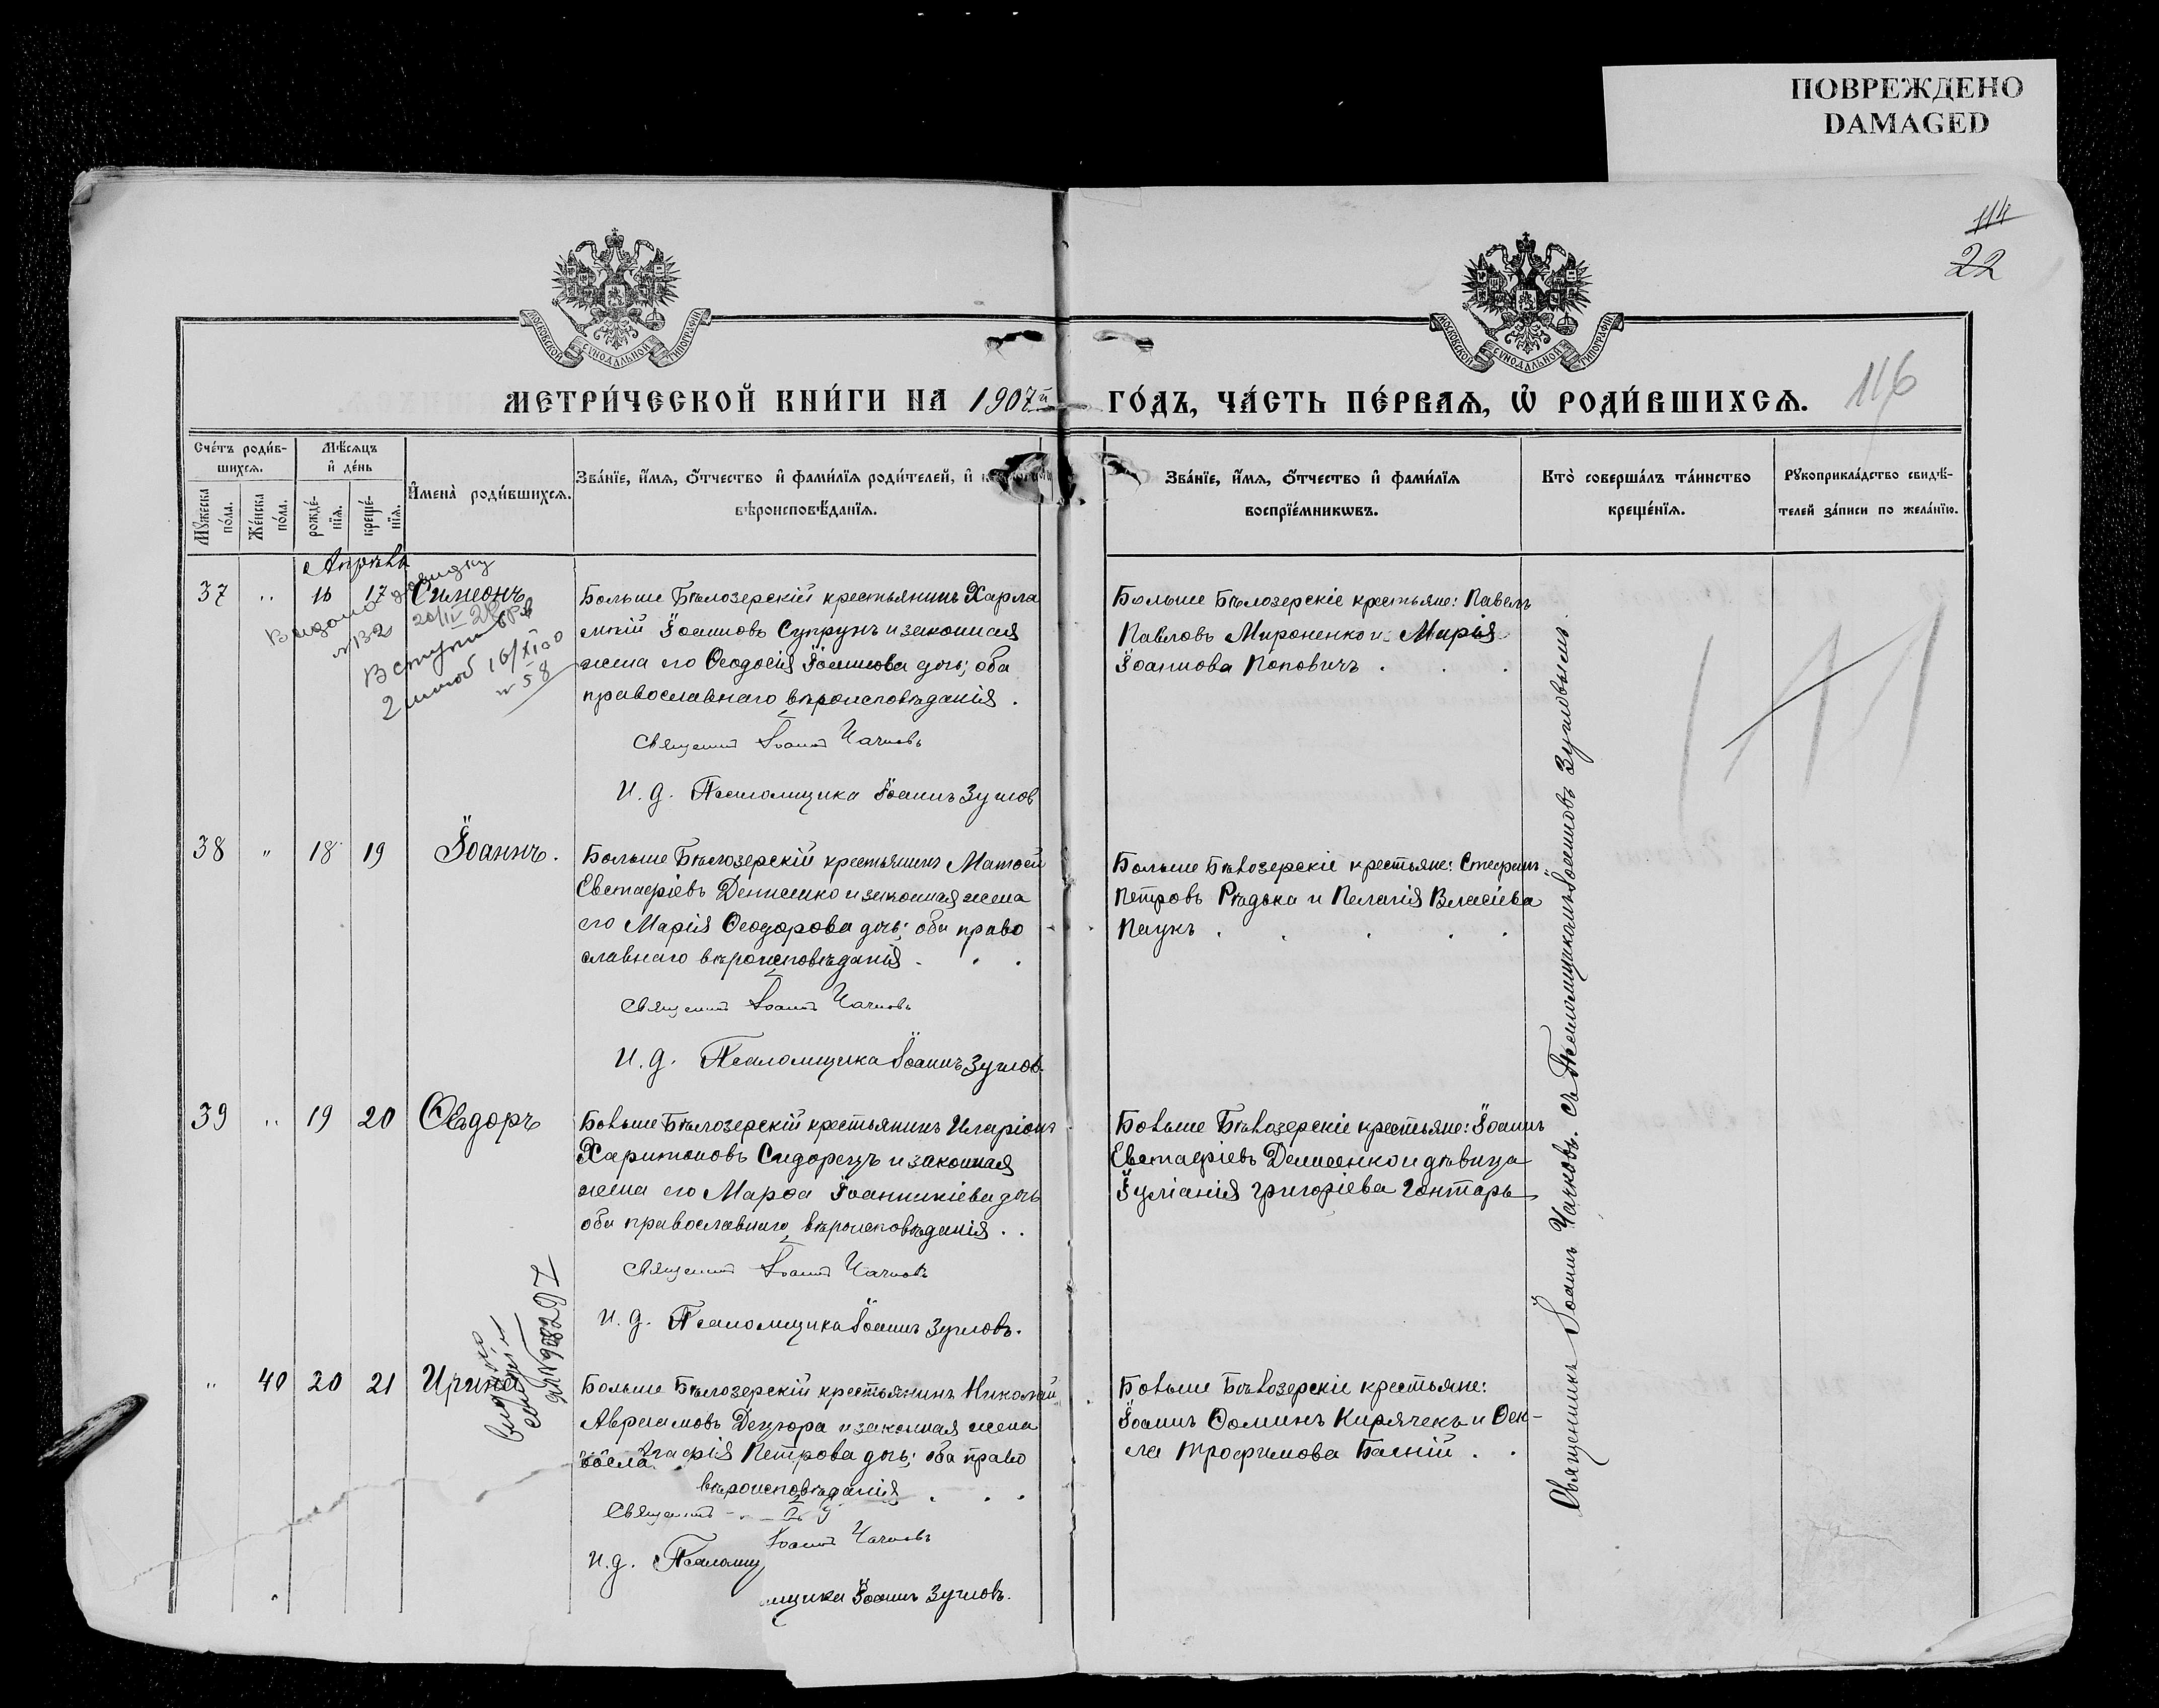 ПОВРЕЖДЕНО
DAMAGED
114
22
116
МОСКОВСКОЙ СУНОДАЛЬНОЙ ТИПОГРАФІИ
МОСКОВСКОЙ СУНОДАЛЬНОЙ ТИПОГРАФІИ
МЕТРИ́ЧЕСКОЙ КНИ́ГИ НА 1907й ГО́ДЪ, ЧА́СТЬ ПЕ́РВАѦ, Ѡ҆ РОДИ́ВШИХСѦ.
Сче́тъ роди́в-
шихсѧ.
Мѣ́сѧцъ
и҆ де́нь
Мꙋ́жеска по́ла.
Же́нска по́ла.
рожде́-
нїѧ.
креще́-
нїѧ.
И҆мена̀ роди́вшихсѧ.
Зва́нїе, и҆́мѧ, ѻ҆́тчество и҆ фами́лїѧ роди́телей, и҆
вѣроисповѣ́данїѧ.
Зва́нїе, и҆́мѧ, ѻ҆́тчество и҆ фами́лїѧ
воспрїе́мникѡвъ.
Кто̀ соверша́лъ та́инство
креще́нїѧ.
Рꙋкоприкла́дство свидѣ́-
телей за́писи по жела́нїю.
Апрѣль
37 " 16 17 Симеонъ
Больше Бѣлозерскій крестьянинъ Харла
мпій Іоанновъ Супрунъ и законная
жена его Ѳеодосія Іоаннова дочь; оба
православнаго вѣроисповѣданія.
Священникъ Іоаннъ Чачковъ
И. д. Псаломщика Іоаннъ Зуглов
Больше Бѣлозерскіе крестьяне: Павелъ
Павловъ Мироненко и Марія
Іоаннова Поповичъ . . .
38 " 18 19 Іоаннъ.
Больше Бѣлозерскій крестьянинъ Матѳей
Евстафіевъ Денисенко и законная жена
его Марія Ѳеодорова дочь; оба право
славнаго вѣроисповѣданія . . .
Священникъ Іоаннъ Чачковъ
И. д. Псаломщика Іоаннъ Зуглов.
Больше Бѣлозерскіе крестьяне: Стефанъ
Петровъ Рѣдька и Пелагія Власіева
Паукъ . . . . .
39 " 19 20 Ѳеодоръ
Больше Бѣлозерскій крестьянинъ Иларіонъ
Харитоновъ Сидорецъ и законная
жена его Марѳа Іоанникіева дочь
оба православнаго вѣроисповѣданія . .
Священникъ Іоаннъ Чачковъ
И. д. Псаломщика Іоаннъ Зугловъ.
Больше Бѣлозерскіе крестьяне: Іоаннъ
Евстафіевъ Денисенко и дѣвица
Іуліанія Григоріева Гонтарь
" 40 20 21 Ирина
Больше Бѣлозерскій крестьянинъ Николай
Авраамовъ Децюра и законная жена
Агафія Петрова дочь; оба право
вѣроисповѣданія . . .
Священникъ
Іоаннъ Чачковъ
И. д. Псаломщ
мщика Іоаннъ Зугловъ.
Больше Бѣлозерскіе крестьяне:
Іоаннъ Ѳоминъ Кирячекъ и Ѳек-
ла Трофимова Баліій . .
Священникъ Іоаннъ Чачковъ. съ Псаломщикомъ Іоанномъ Зугловымъ.